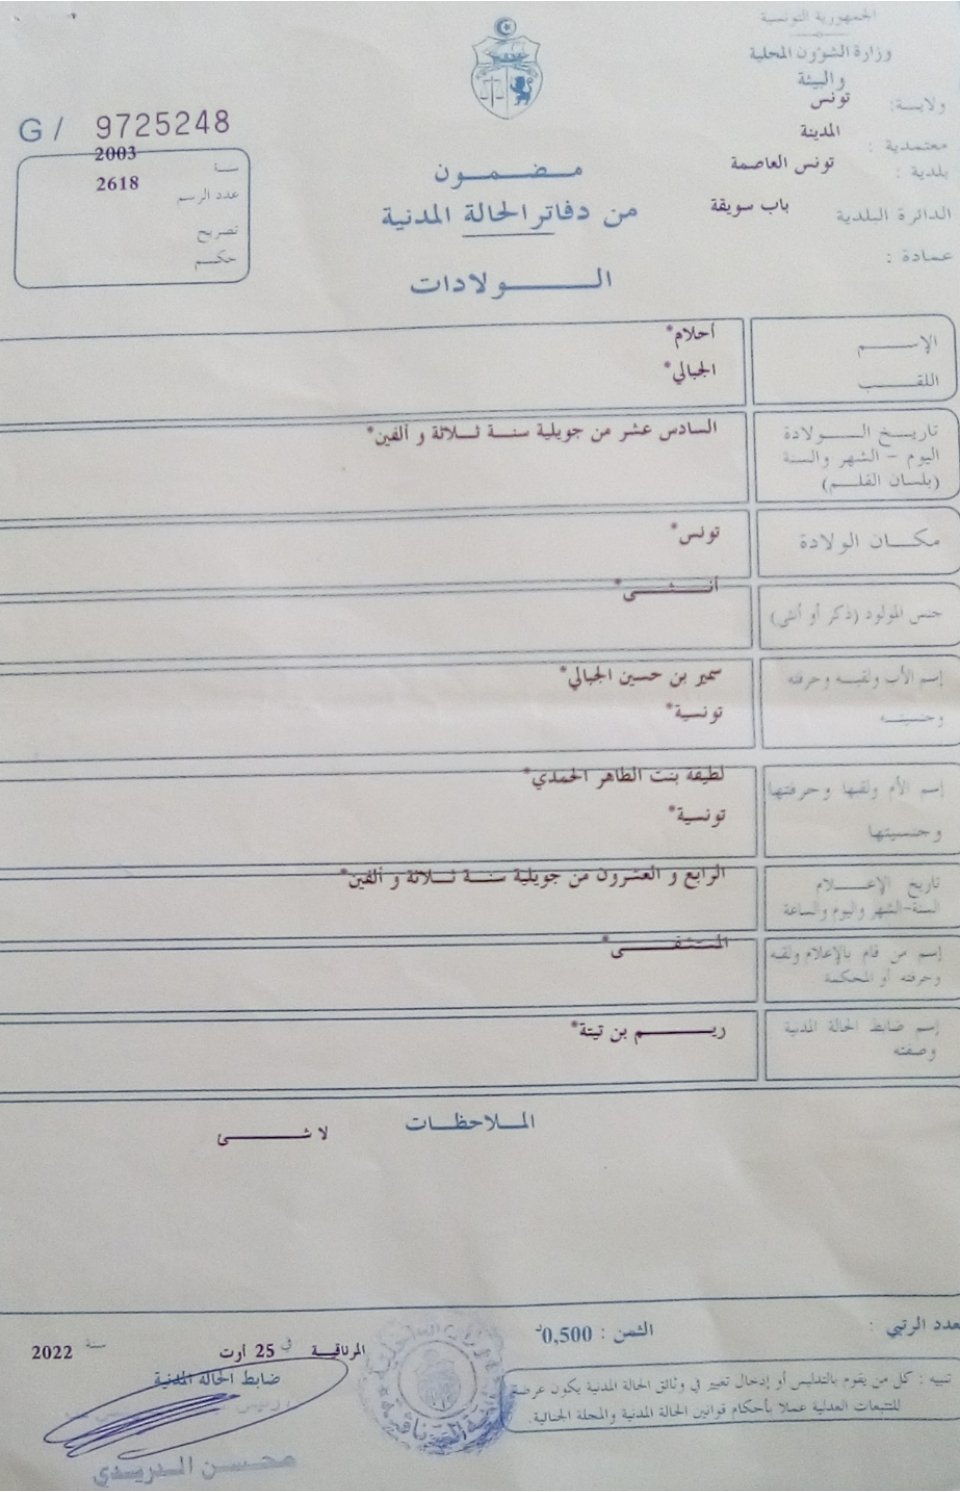 الجمهورية التونسية
وزارة الشؤون المحلية
والبيئة
ولاية: تونس
معتمدية : المدينة
بلدية : تونس العاصمة
الدائرة البلدية باب سويقة
عمادة :
G / 9725248
سنة 2003
عدد الرسم 2618
تصريح
حكم
مضمون
من دفاتر الحالة المدنية
الولادات
الإسم أحلام*
اللقب الجبالي*
تاريخ الولادة السادس عشر من جويلية سنة ثلاثة و ألفين*
اليوم - الشهر والسنة
(بلسان القلم)
مكان الولادة تونس*
جنس المولود (ذكر أو أنثى) أنثى*
إسم الأب ولقبه وحرفته سمير بن حسين الجبالي*
وجنسيته تونسية*
إسم الأم ولقبها وحرفتها لطيفة بنت الطاهر الحمدي*
وجنسيتها تونسية*
تاريخ الإعلام الرابع و العشرون من جويلية سنة ثلاثة و ألفين*
السنة-الشهر واليوم والساعة
إسم من قام بالإعلام ولقبه المستشفى*
وحرفته أو المحكمة
إسم ضابط الحالة المدنية ريم بن تيتة*
وصفته
الملاحظات
لا شئ
عدد الرتبي :
الثمن : 0,500د
المرناقية في 25 أوت سنة 2022
ضابط الحالة المدنية
محسن الدريدي
تنبيه : كل من يقوم بالتدليس أو إدخال تغيير في وثائق الحالة المدنية يكون عرضة
للتتبعات العدلية عملا بأحكام قوانين الحالة المدنية والمجلة الجنائية.